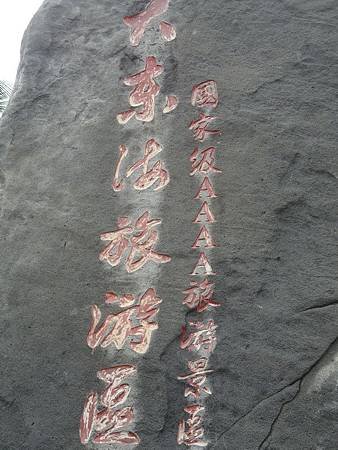 大东海旅游區
國家级AAAA旅游景區